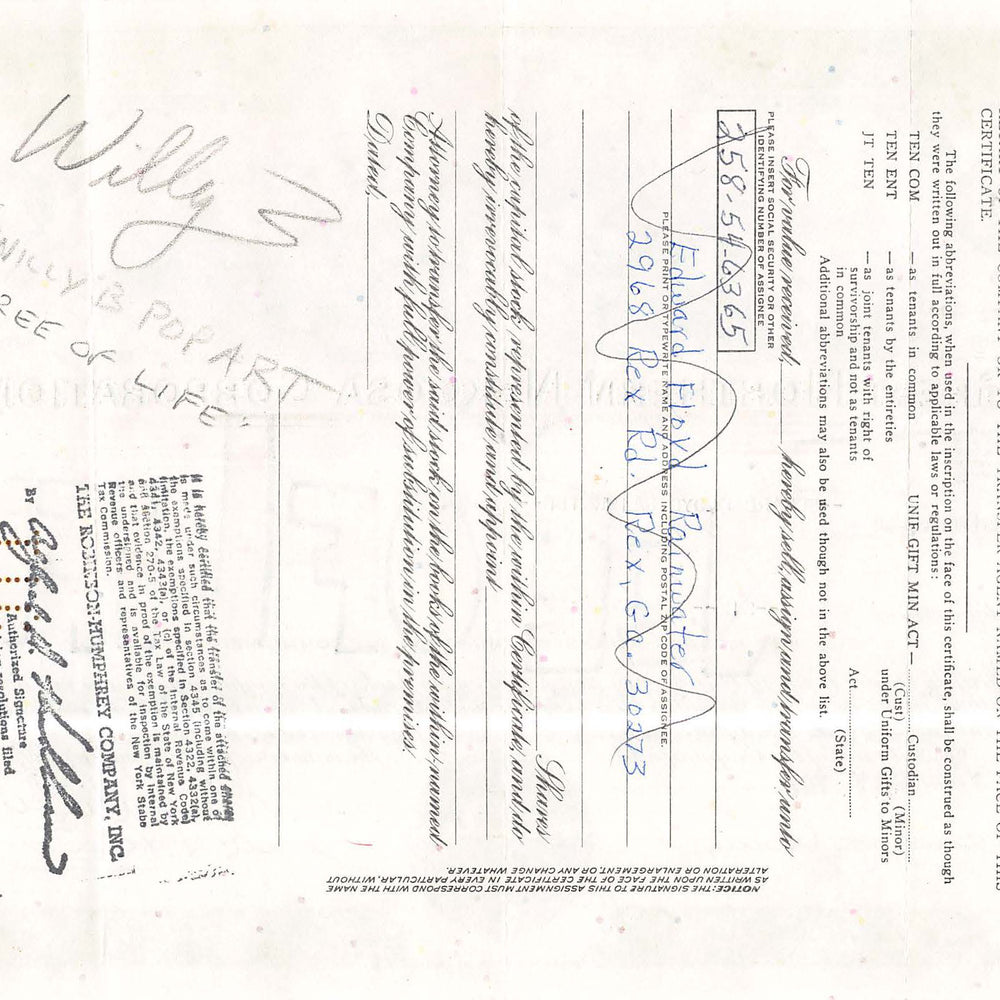 CERTIFICATE.
The following abbreviations, when used in the inscription on the face of this certificate, shall be construed as though
they were written out in full according to applicable laws or regulations:
TEN COM — as tenants in common UNIF GIFT MIN ACT — Custodian
(Cust) (Minor)
TEN ENT — as tenants by the entireties under Uniform Gifts to Minors
JT TEN — as joint tenants with right of
survivorship and not as tenants
in common
Act
(State)
Additional abbreviations may also be used though not in the above list.
For value received, hereby sell, assign and transfer unto
PLEASE INSERT SOCIAL SECURITY OR OTHER
IDENTIFYING NUMBER OF ASSIGNEE
258-54-6365
Edward Floyd Rainwater
PLEASE PRINT OR TYPEWRITE NAME AND ADDRESS INCLUDING POSTAL ZIP CODE OF ASSIGNEE.
2968 Rex Rd. Rex, Ga. 30273
Shares
of the capital stock represented by the within Certificate, and do
hereby irrevocably constitute and appoint
Attorney to transfer the said stock on the books of the within named
Company with full power of substitution in the premises.
Dated,
NOTICE: THE SIGNATURE TO THIS ASSIGNMENT MUST CORRESPOND WITH THE NAME
AS WRITTEN UPON THE FACE OF THE CERTIFICATE IN EVERY PARTICULAR, WITHOUT
ALTERATION OR ENLARGEMENT, OR ANY CHANGE WHATEVER.
Willy
WILLY B POP ART
REE OF LIFE
It is hereby certified that the transfer of the attached shares
is made under such circumstances as to come within one of
the exemptions specified in section 4345 (including without
limitation, the exemptions specified in Section 4322, 4332(a),
4341, 4342, 4343(a), or (c) of the Internal Revenue Code)
and Section 270-5 of the Tax Law of the State of New York
and that evidence in proof of the exemption is maintained by
the undersigned and is available for inspection by Internal
Revenue officers and representatives of the New York State
Tax Commission.
THE ROBINSON-HUMPHREY COMPANY, INC.
By
Authorized Signature
resolutions filed